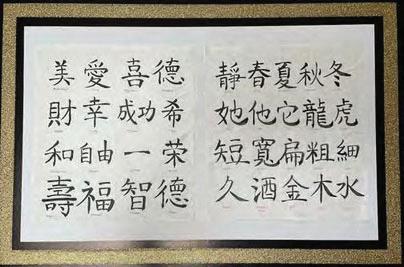 美愛喜德
財幸成功希
和自由一荣
壽福智德
靜春夏秋冬
她他它龍虎
短寬扁粗細
久酒金木水